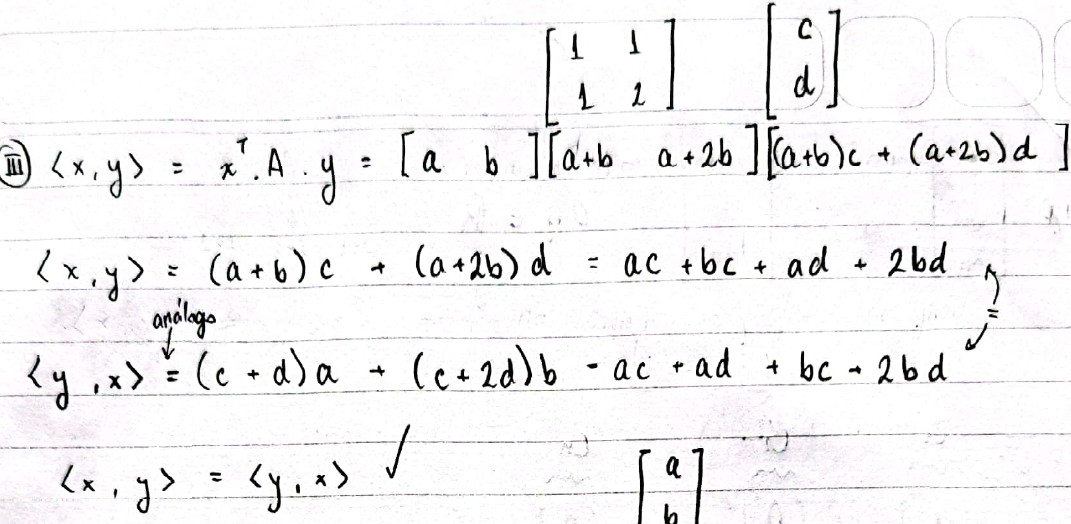 [1 1] [c]
[1 2] [d]
(III) <x,y> = xᵀ.A.y = [a b][a+b a+2b][(a+b)c + (a+2b)d]
<x,y> = (a+b)c + (a+2b)d = ac + bc + ad + 2bd
análogo
=
<y,x> = (c+d)a + (c+2d)b = ac + ad + bc + 2bd
<x,y> = <y,x> ✓
[a]
[b]